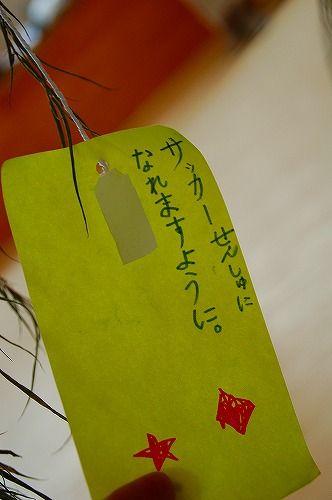 サッカーせんしゅに
なれますように。